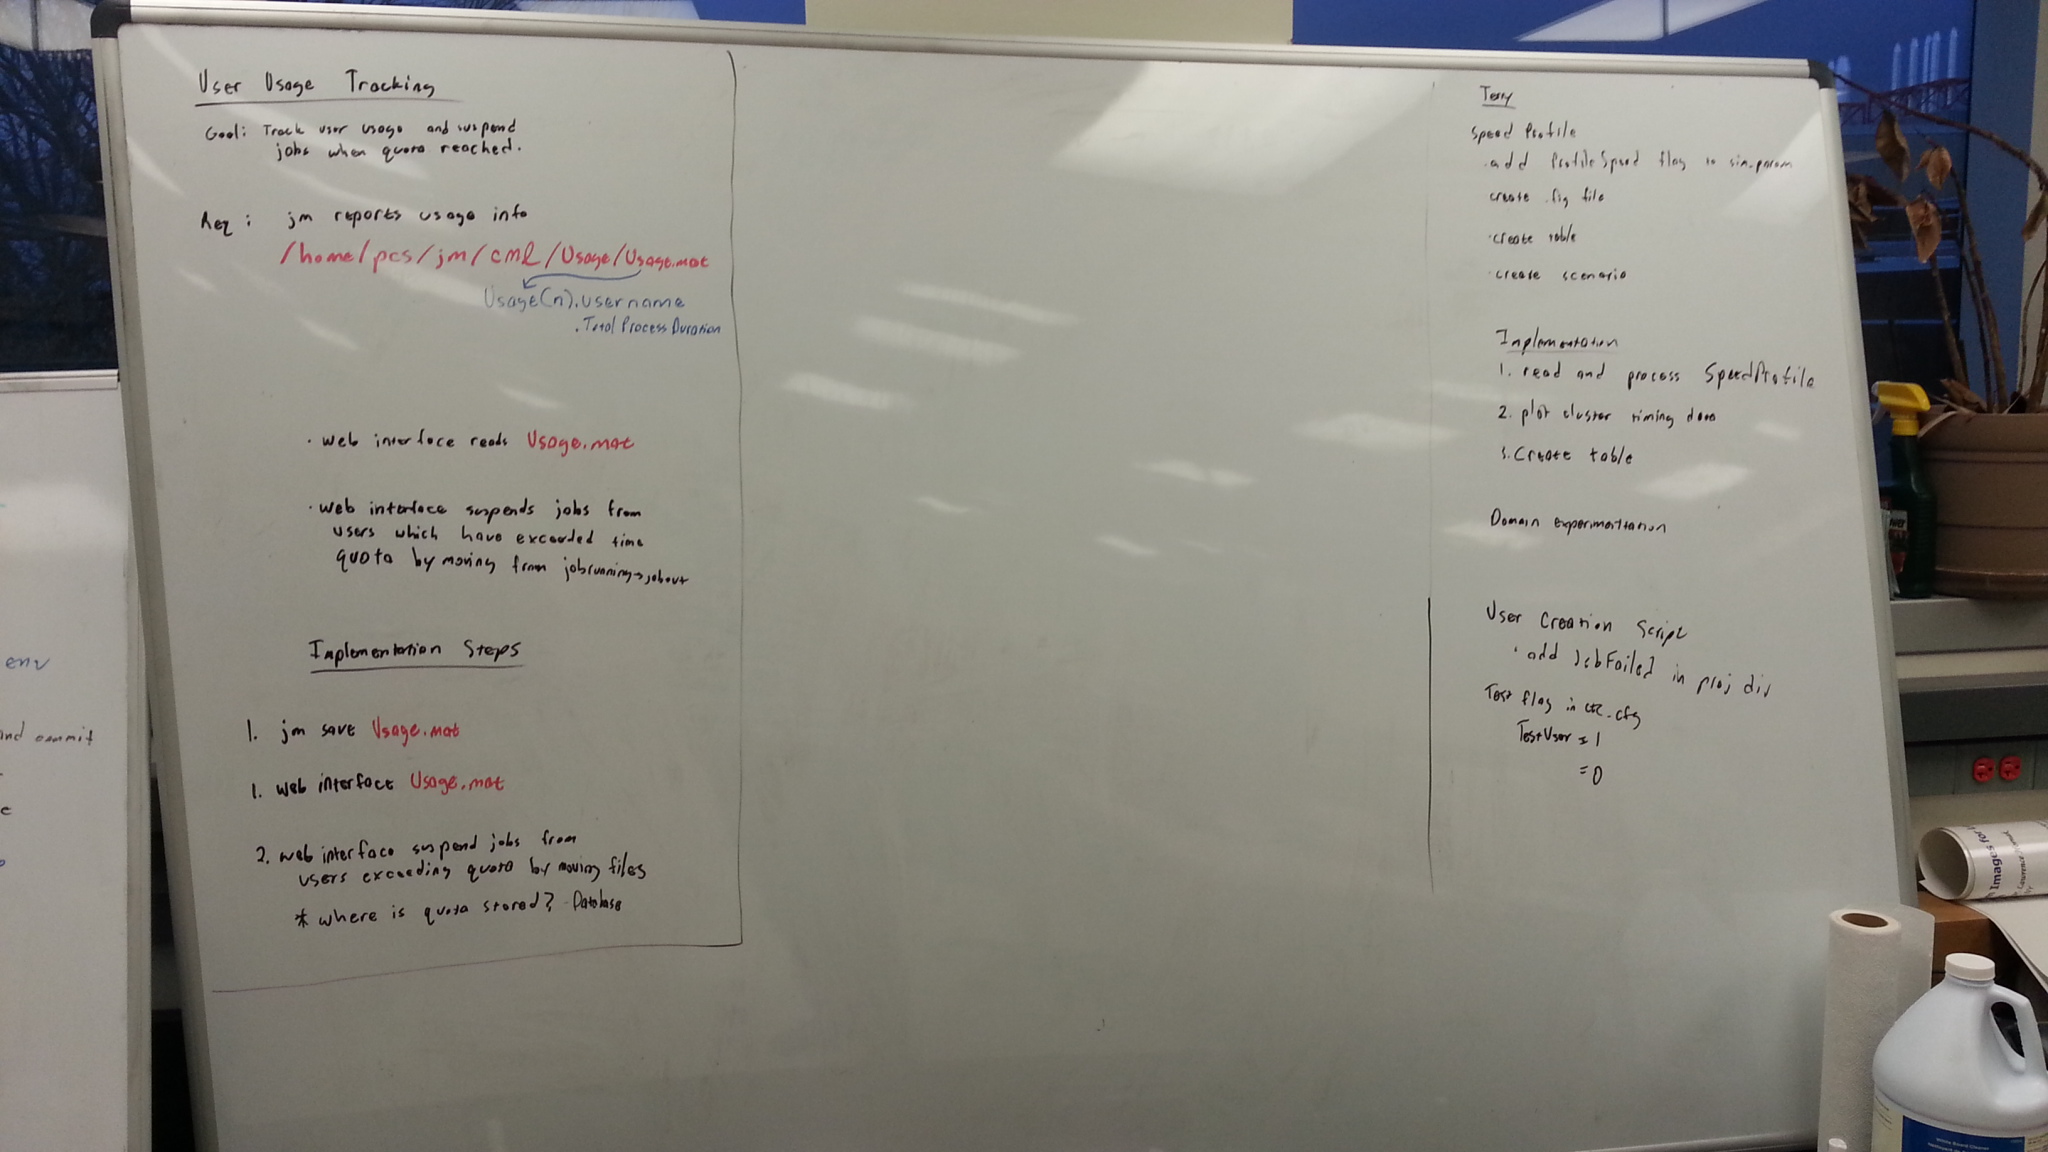 User Usage Tracking
Goal: Track user usage and suspend
jobs when quota reached.
Req: jm reports usage info
/home/pcs/jm/cml/Usage/Usage.mat
Usage(n).username
.Total Process Duration
· web interface reads Usage.mat
· web interface suspends jobs from
users which have exceeded time
quota by moving from jobrunning→jobout
Implementation Steps
1. jm save Usage.mat
1. web interface Usage.mat
2. web interface suspend jobs from
users exceeding quota by moving files
* where is quota stored? - Database
Terry
Speed Profile
· add ProfileSpeed flag to sim.param
create .fig file
· create table
· create scenario
Implementation
1. read and process SpeedProfile
2. plot cluster timing data
3. Create table
Domain experimentation
User Creation Script
· add JobFailed in proj dir
Test flag in cfg
TestUser = 1
= 0
env
and commit
Images for